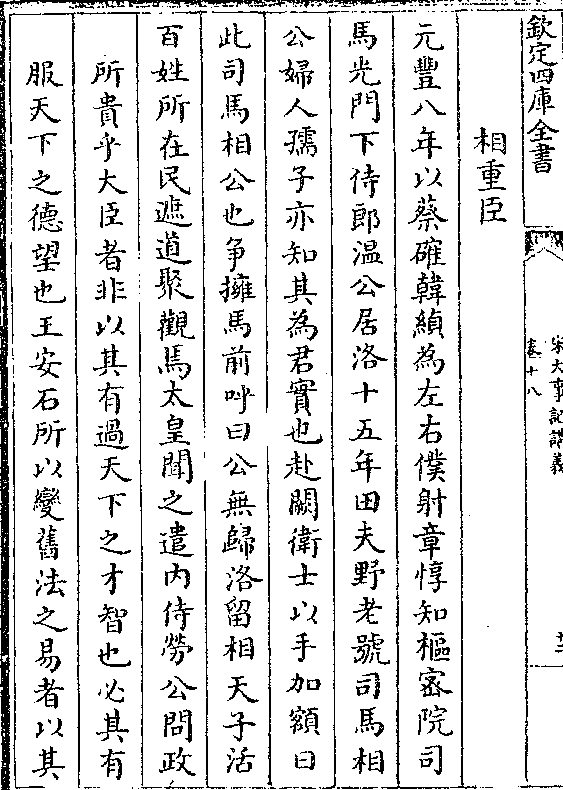 欽定四庫全書
宋大事記講義
卷十八
十二
相重臣
元豐八年以蔡確韓縝為左右僕射章惇知樞密院司
馬光門下侍郎溫公居洛十五年田夫野老號司馬相
公婦人孺子亦知其為君實也赴闕衛士以手加額曰
此司馬相公也爭擁馬前呼曰公無歸洛留相天子活
百姓所在民遮道聚觀馬太皇聞之遣内侍勞公問政
所貴乎大臣者非以其有過天下之才智也必其有
服天下之德望也王安石所以變舊法之易者以其